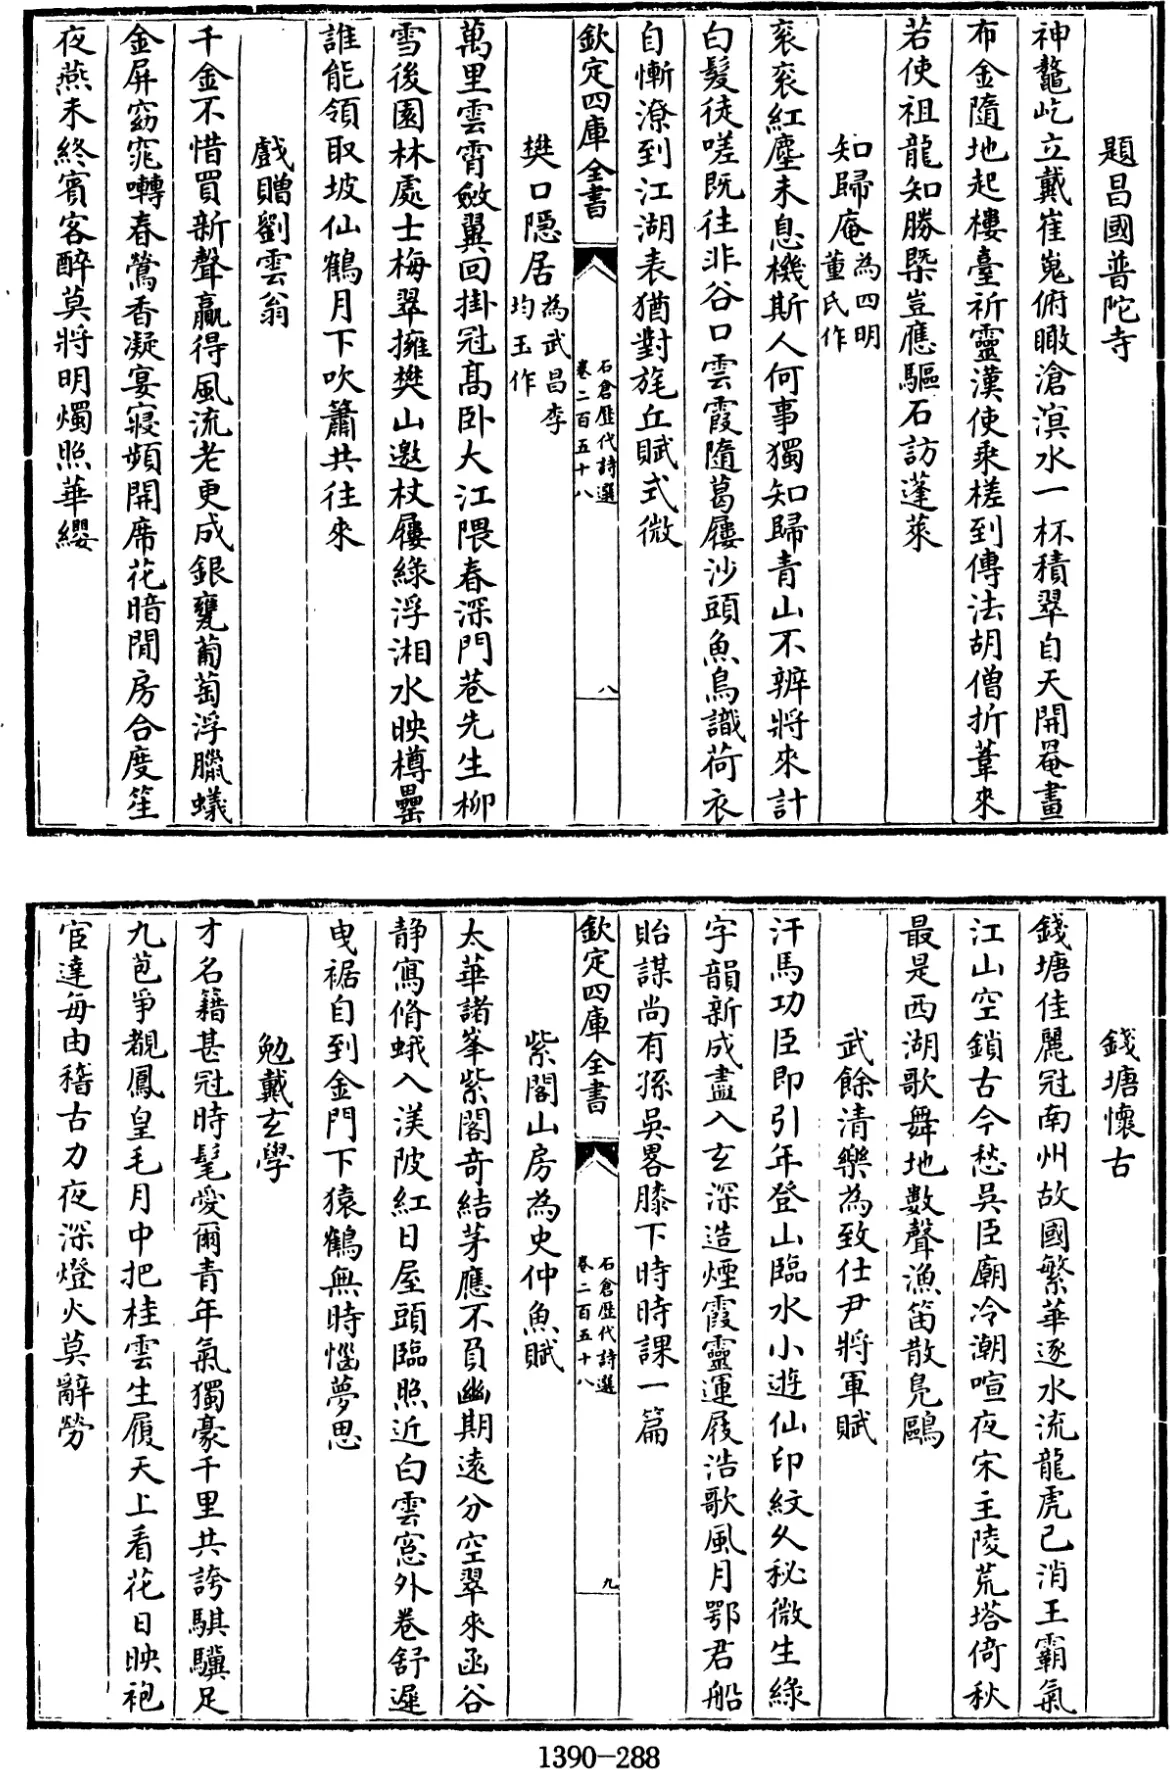 題昌國普陀寺
神鼇屹立戴崔嵬俯瞰滄溟水一杯積翠自天開罨畫
布金隨地起樓臺祈靈漢使乘槎到傳法胡僧折葦來
若使祖龍知勝槩豈應驅石訪蓬萊
知歸庵為四明董氏作
衮衮紅塵未息機斯人何事獨知歸青山不辨將來計
白髮徒嗟既往非谷口雲霞隨葛屨沙頭魚鳥識荷衣
自慚潦到江湖表猶對旄丘賦式微
欽定四庫全書
石倉歷代詩選
卷二百五十八
八
樊口隠居為武昌李均玉作
萬里雲霄斂翼回掛冠髙卧大江隈春深門巷先生柳
雪後園林處士梅翠擁樊山邀杖屨緑浮湘水映樽罍
誰能領取坡仙鶴月下吹簫共往來
戲贈劉雲翁
千金不惜買新聲贏得風流老更成銀甕葡萄浮臘蟻
金屏窈窕囀春鶯香凝宴寢頻開席花暗閒房合度笙
夜燕未終賓客醉莫將明燭照華纓
錢塘懷古
錢塘佳麗冠南州故國繁華逐水流龍虎已消王霸氣
江山空鎖古今愁吳臣廟冷潮喧夜宋主陵荒塔倚秋
最是西湖歌舞地數聲漁笛散鳬鷗
武餘清樂為致仕尹將軍賦
汗馬功臣即引年登山臨水小遊仙印紋久秘微生綠
字韻新成盡入玄深造煙霞靈運屐浩歌風月鄂君船
貽謀尚有孫吳畧膝下時時課一篇
欽定四庫全書
石倉歷代詩選
卷二百五十八
九
紫閣山房為史仲魚賦
太華諸峯紫閣奇結茅應不負幽期遠分空翠來函谷
静寫脩蛾入渼陂紅日屋頭臨照近白雲窓外卷舒遲
曳裾自到金門下猿鶴無時惱夢思
勉戴玄學
才名籍甚冠時髦愛爾青年氣獨豪千里共誇騏驥足
九苞爭覩鳳皇毛月中把桂雲生履天上看花日映袍
宦達每由稽古力夜深燈火莫辭勞
1390-288